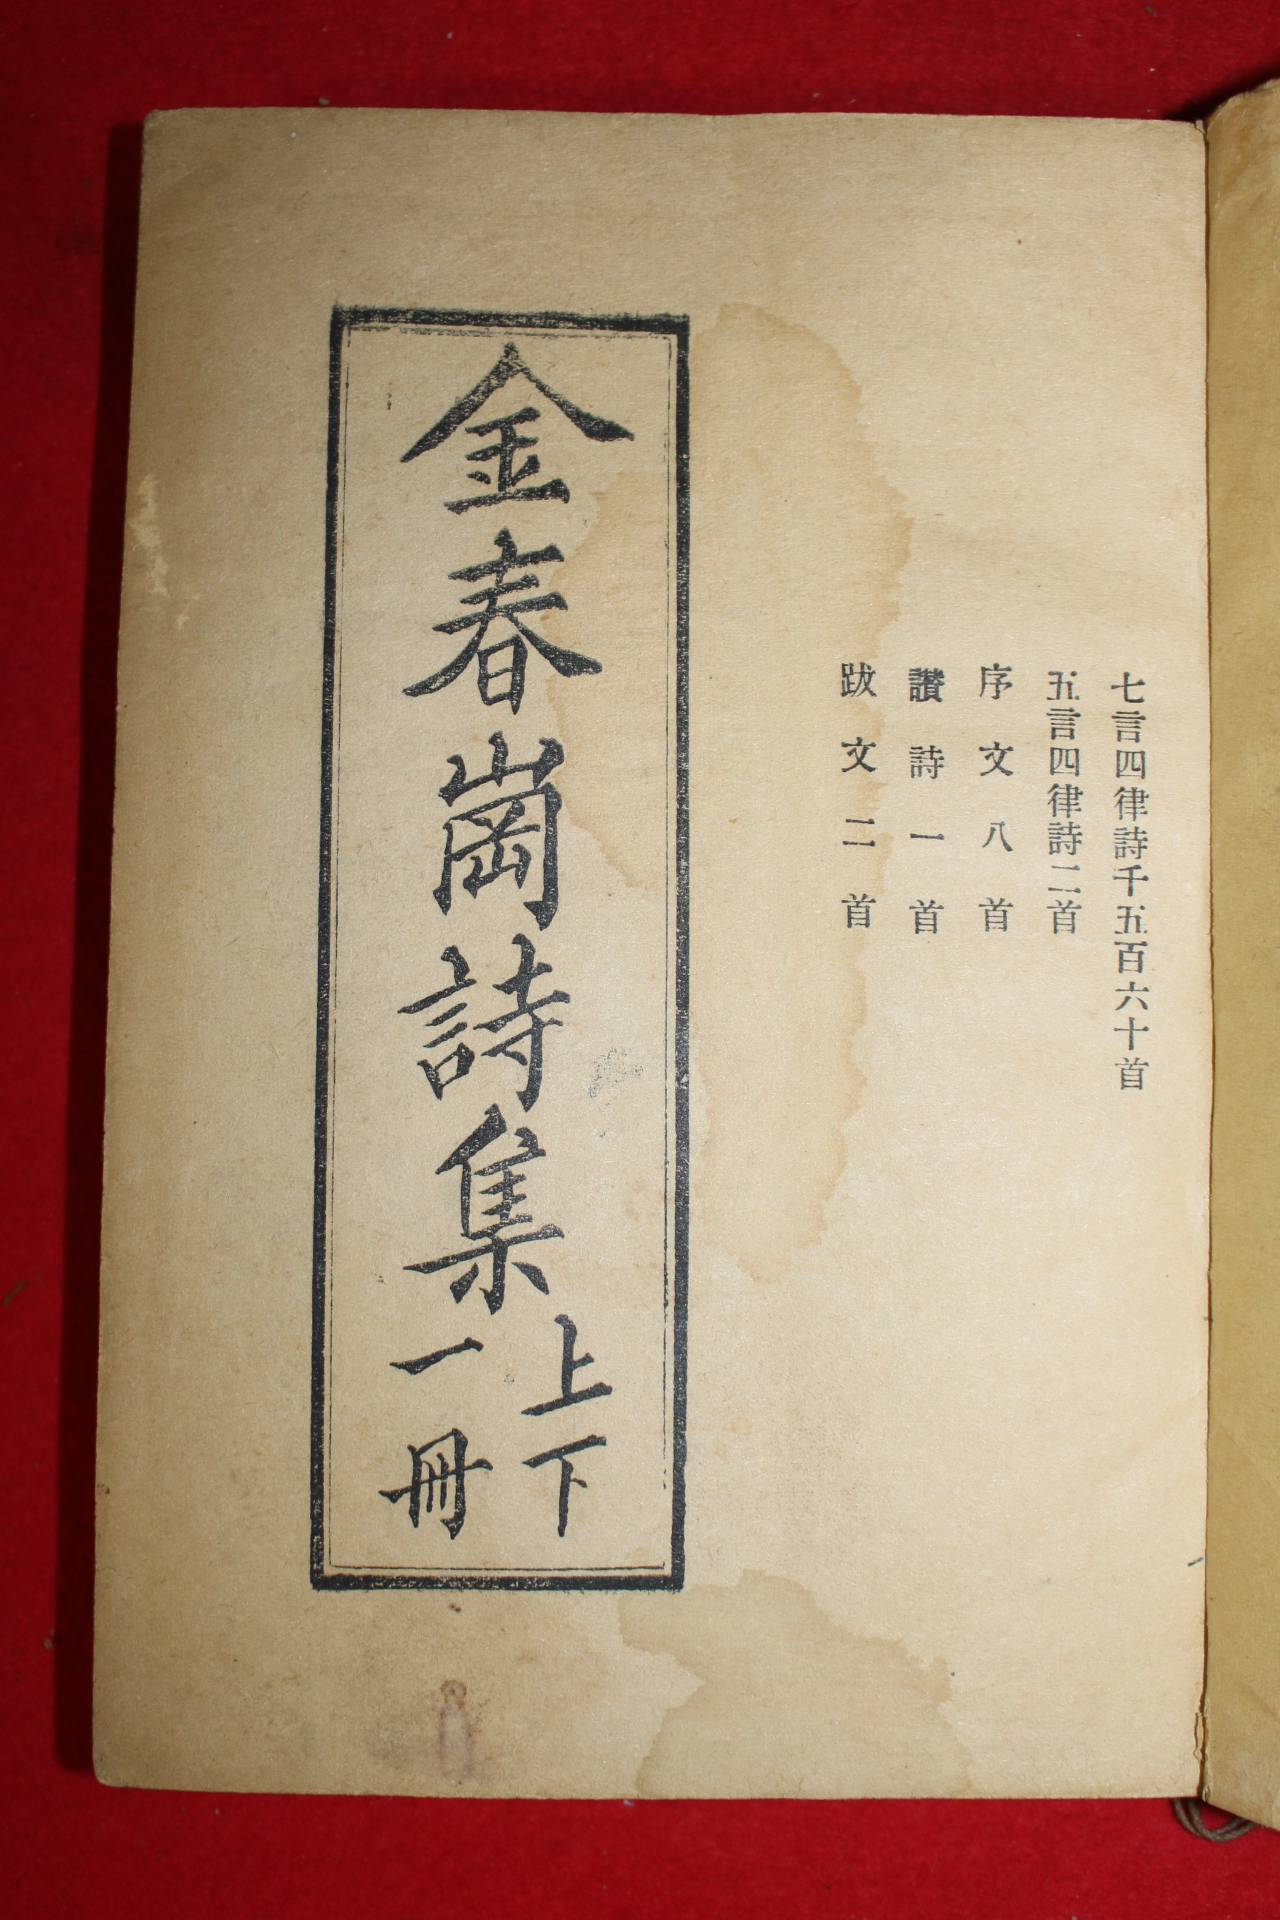 七言四律詩千五百六十首
五言四律詩二首
序文八首
讚詩一首
跋文二首
金春崗詩集
上下
一冊